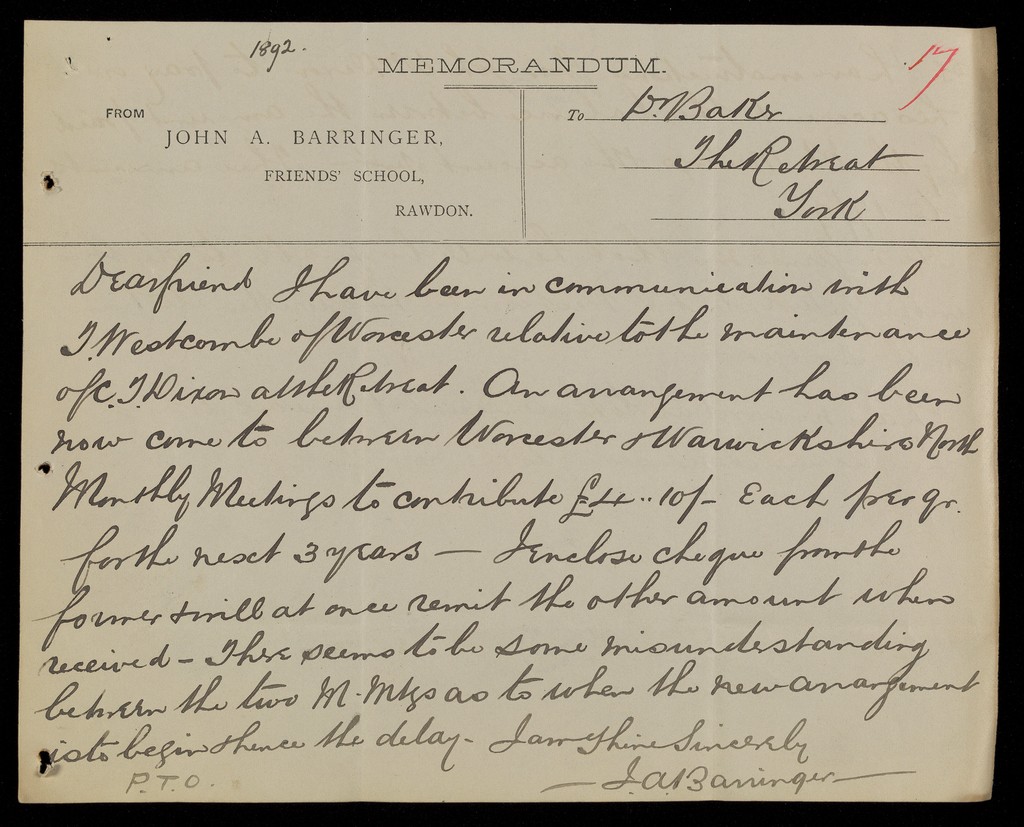 1892.
MEMORANDUM.
17
FROM
JOHN A. BARRINGER,
FRIENDS' SCHOOL,
RAWDON.
To Dr. Baker
The Retreat
York
Dear friend I have been in communication with
T. Westcombe of Worcester relative to the maintenance
of C. T. Dixon at the Retreat. An arrangement has been
now come to between Worcester & Warwickshire North
Monthly Meetings to contribute £4..10/- Each per qr.
for the next 3 years — I enclose cheque from the
former & will at once remit the other amount when
received - There seems to be some misunderstanding
between the two M. Mtgs as to when the new arrangement
is to begin & hence the delay - I am Thine Sincerely
— J. A. Barringer —
P.T.O.